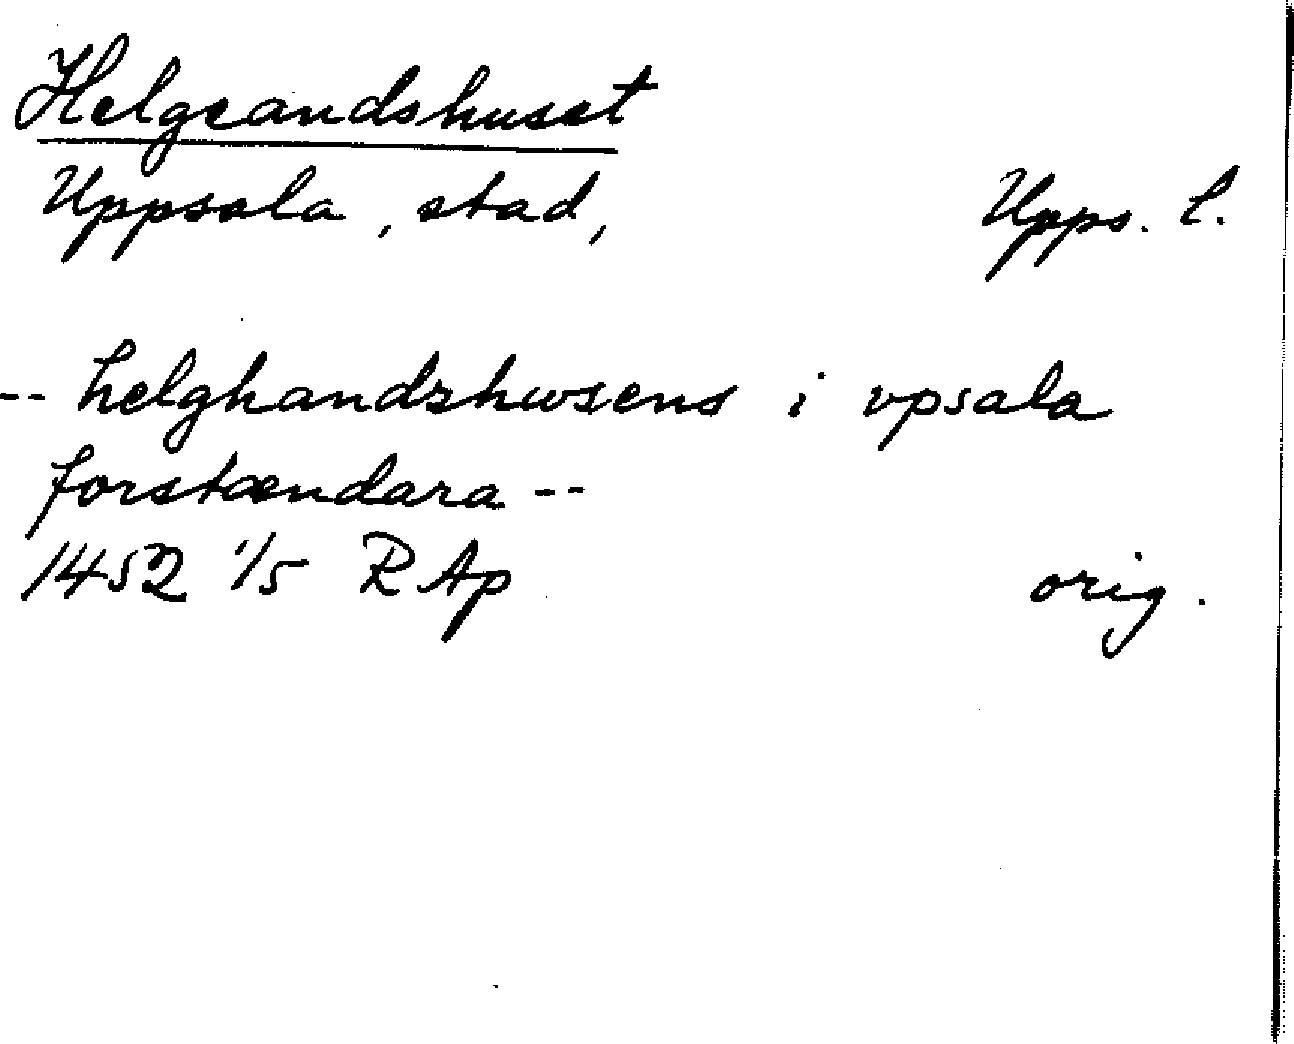 Helgeandshuset
Uppsala, stad, Upps. l.
-- helghandzhwsens i vpsala
forstændara --
1452 1/5 RAp orig.